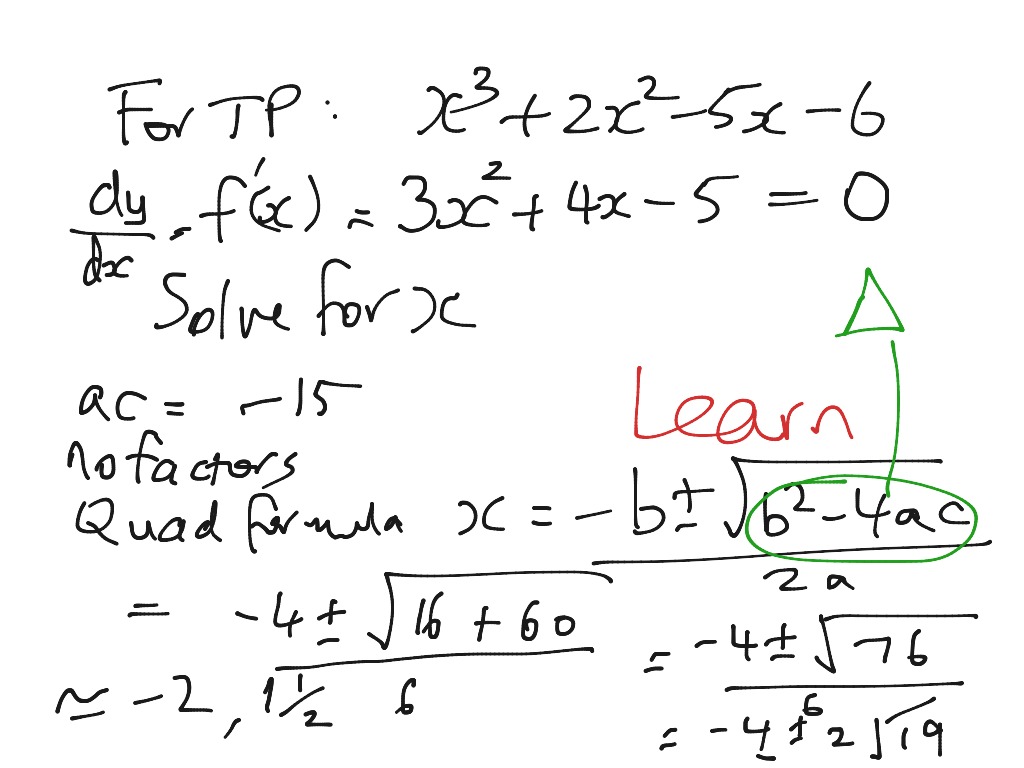 For TP: x³ + 2x² - 5x - 6
dy/dx = f'(x) = 3x² + 4x - 5 = 0
Solve for x
Δ
ac = -15
Learn
no factors
Quad formula x = -b ± √(b² - 4ac) / 2a
= -4 ± √(16 + 60) / 6
= -4 ± √76 / 6
≃ -2, 1 1/2
= -4 ± 2√19